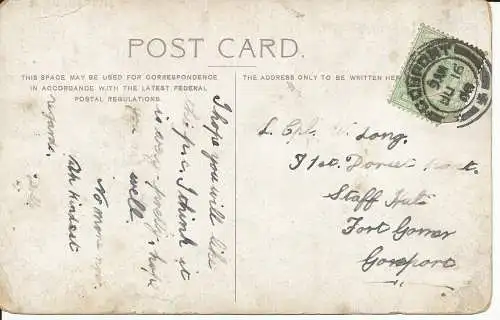 POST CARD.
THIS SPACE MAY BE USED FOR CORRESPONDENCE
IN ACCORDANCE WITH THE LATEST FEDERAL
POSTAL REGULATIONS.
THE ADDRESS ONLY TO BE WRITTEN HERE
I hope you will like
this p.c. I think it
is very pretty, hope
you
well.
No more now.
With kindest
regards.
L. Cpl. Long.
Staff Hut
Fort Gomer
Gosport